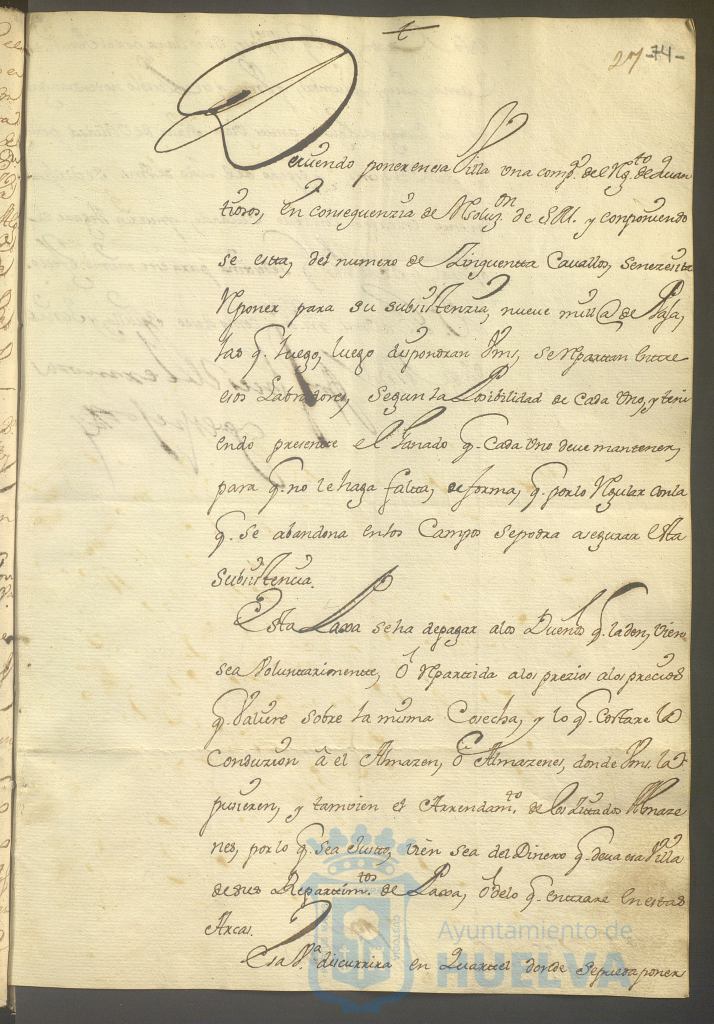 27 -74-
Deviendo poner en esa Villa una comp.ª del Rg.to de Quan
tiosos, en consequenzia de Resoluz.on de S.M. y componiendo
se estta, del numero de Zinquentta Cavallos, se nezesita
Reponer para su subsistenzia, nueve mill @ de Paja,
las q. luego, luego dispondran Vms, se Reparttan Enttre
esos Labradores, segun la Posibilidad de cada Uno, y teni
endo presentte el Ganado q. cada Uno deve mantener,
para q. no le haga faltta, de forma, q. por lo Regular con la
q. se abandona en los Campos se podra asegurar Esta
subsistencia.
Esta Paxa se ha de pagar a los Dueños q. la den, vien
sea Voluntariamentte, ô Repartida a los prezios a los precios
q. Valiere sobre la misma Cosecha, y lo q. costare la
Conduzion â el Almazen, ô Almazenes, donde Vms. la
pusieren, y tamvien el Arrendam.to de los zittados Almaze
nes, por lo q. sea Justto, vien sea del Dinero q. deva esa Villa
de sus Repartim.tos de Paxa, ô de lo q. enttrare en estas
Arcas.
Esa V.ª discurrira en Quarttel donde se pueda poner
Ayuntamiento de
HUELVA